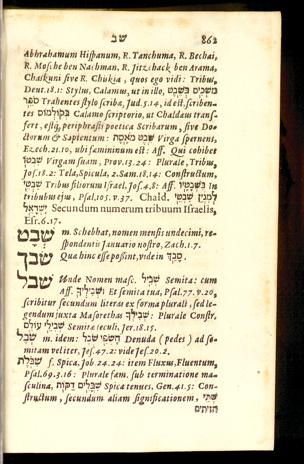 שב 862
Abhrahamum Hispanum, R. Tanchuma, R. Bechai,
R. Mosche ben Nachman. R. Jitzchack ben Arama,
Chaskuni sive R. Chizkia, quos ego vidi: Tribus,
Deut. 18.1: Stylus, Calamus, ut in illo,
Trahentes stylo scriba, Jud. 5.14, id est, scriben-
tes Calamo scriptorio, ut Chaldaus trans-
fert, estq́, periphrasis poetica Scribarum, sive Do-
ctorum & Sapientum: Virga spernens,
Ezech. 21.10, ubi femininum est: Aff. Qui cohibet
שבטו Virgam suam, Prov. 13.24: Plurale, Tribus,
Jos. 18.2: Tela, Spicula, 2. Sam. 18.14: Constructum,
שבטי Tribus filiorum Israel, Jos. 4.8: Aff. In
tribubus ejus, Psal. 105. v. 37. Chald.
ישראל Secundum numerum tribuum Israelis,
Esr. 6.17.
שבט m. Schebhat, nomen mensis undecimi, re-
spondentis Januario nostro, Zach. 1.7.
שבך Qua hinc esse possint, vide in סבך
שבל Unde Nomen masc. שביל Semita: cum
Aff. Et semita tua, Psal. 77. v. 20,
scribitur secundum literas ex forma plurali, sed le-
gendum juxta Masorethas Plurale Constr.
שבילי עולם Semita seculi, Jer. 18.15.
שבל m. idem: חשפי שבל Denuda (pedes) ad se-
mitam veliter, Jes. 47.2: vide Jes. 20.2.
f. Spica, Job. 24.24: item Fluxus, Fluentum,
Psal. 69.3.16: Plurale fæm. sub terminatione ma-
sculina, Spica tenues, Gen. 41.5: Con-
structum, secundum aliam significationem, שתי
הזיתים